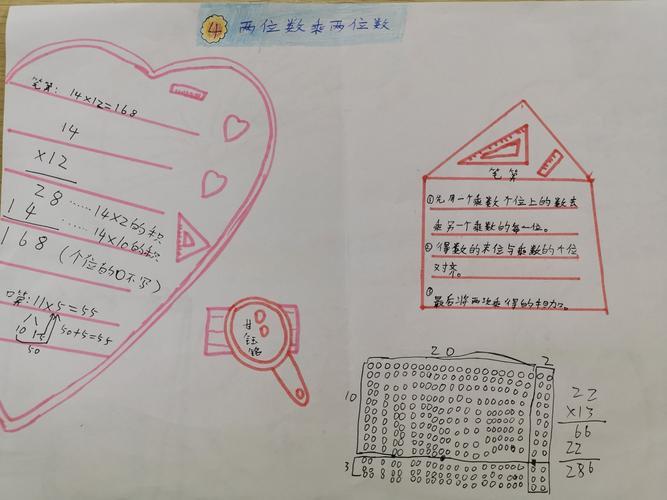 4 两位数乘两位数
笔算：14×12=168
14
×12
28 ……14×2的积
14 ……14×10的积
168 (个位的0不写)
口算：11×5=55
10 1×5 50+5=55
50
笔算
①先用一个乘数个位上的数去
乘另一个乘数的每一位。
②得数的末位与乘数的个位
对齐。
③
最后将两次乘得的相加。
20 2
10
3
22
×13
66
22
286